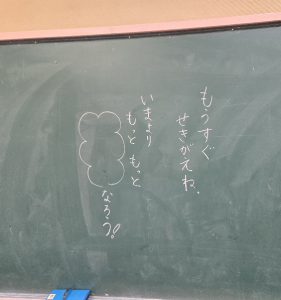 もうすぐ
せきがえね、
いまより
もっと もっと
なろう!